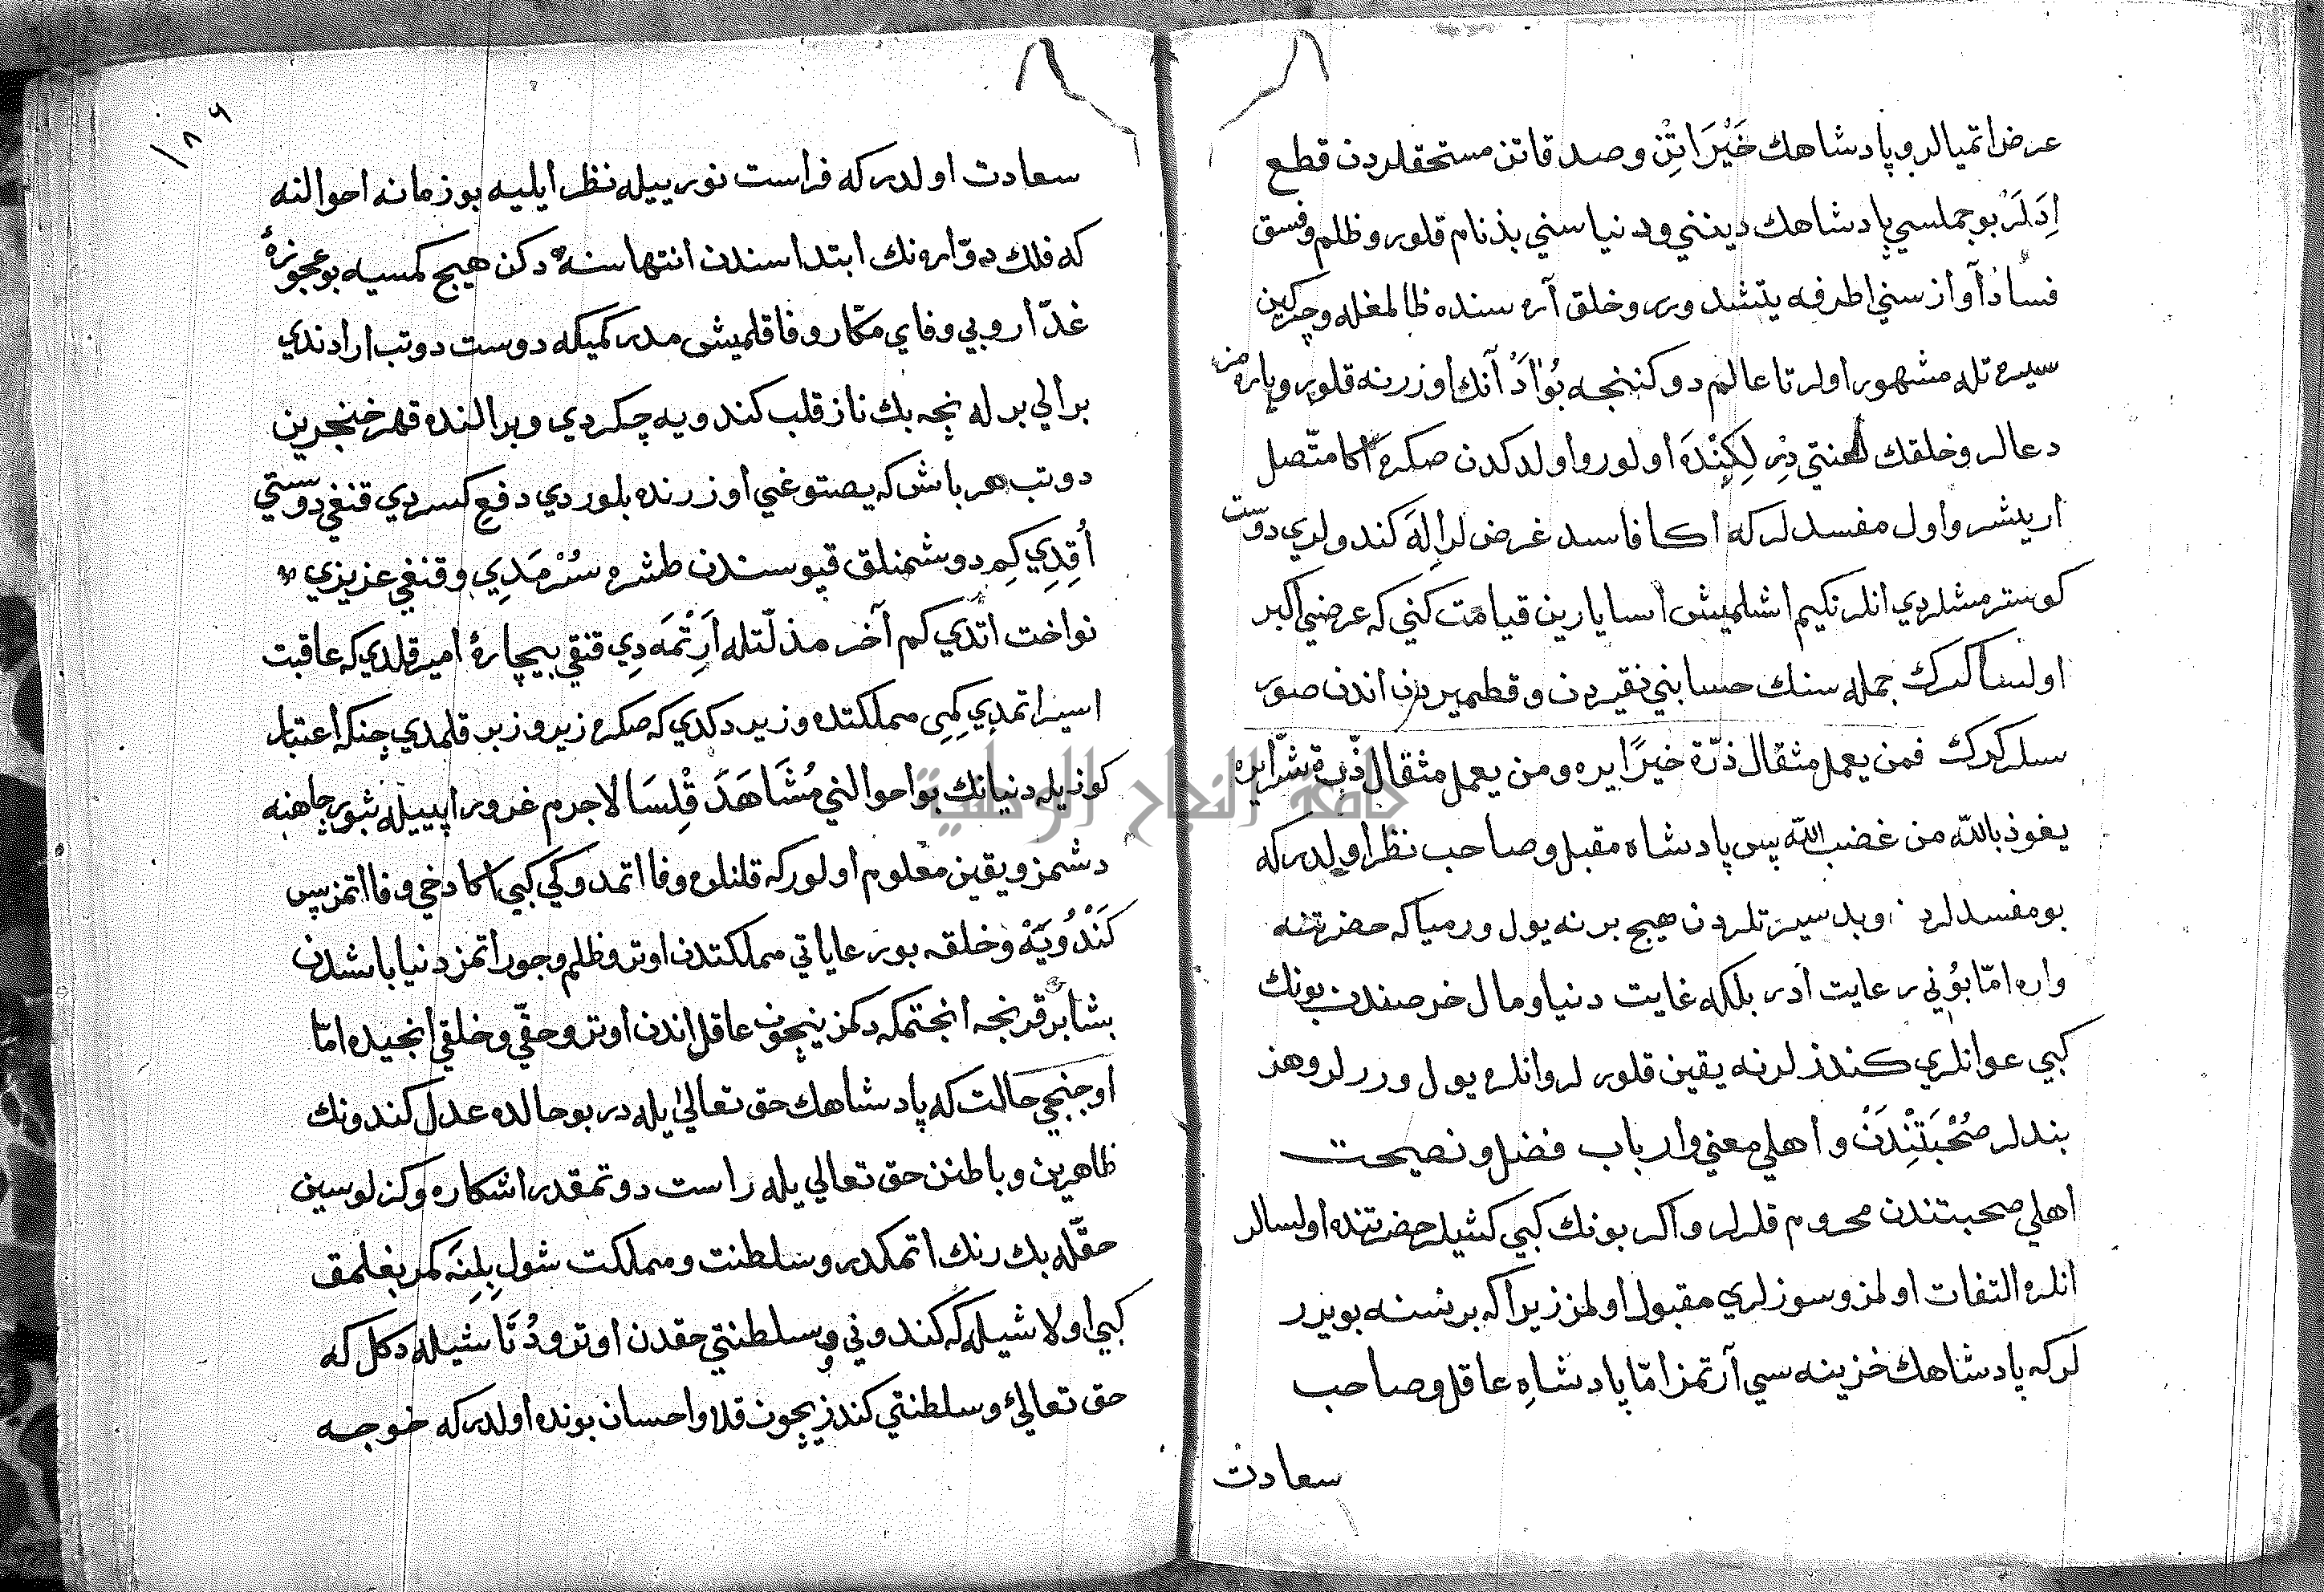 عرض اتميالر و پادشاهك خَيْرَاتِن و صدقاتن مستحقلردن قطع
اِدَلَرْ بو جملسي پادشاهك ديننى و دنياسني بذنام قلور و ظلم و فسق
فساذ آوازسني اطرفه يتشدورر و خلق آره سنده ظالمغله و چركين
سيرتله مشهور اولر تا عالم دوكننجه بُوْ اَدْ آنك اوزرنه قلور و پاره من
دعالر و خلقك لعنتي دِرِ لِكِنْدَه اولور و اولدكدن صكره اكا متّصل
اريشر و اول مفسدلر كه اكا فاسد غرض لر اِلَه كندولري دوست
كوسترمشلردي انلر نكيم اشلميش اسا يارين قيامت كني كه عرض اكبر
اولسا كرك جمله سنك حسابني نقيردن و قطميردن اندن صور
سلر كرك فمن يعمل مثقال ذرّة خيرًا يره و من يعمل مثقال ذرّة شرّا يره
يعوذ بالله من غضب الله پس پادشاه مقبل و صاحب نظر اولدر كه
بو مفسدلرد و بد سيرتلردن هيچ برنه يول ورميا كه حضرتنه
واره امّا بوُني رعايت ادر بلكه غايت دنيا و مال خرصندن بونك
كبي عوانلري كندزلرنه يقين قلورلر و انلره يول وررلر و هنر
بندلر صُحْبَتِنْدَنْ و اهلي معني و ارباب فضل و نصيحت
اهلي صحبتندن محروم قلرلر و اكر بونك كبي كشيلر حضرتنده اولسالر
انلره التفات اولمز و سوزلري مقبول اولمز زيرا كه بر نسنه بويرر
لر كه پادشاهك خزينه سي آرتمز امّا پادشاهِ عاقل و صاحب
سعادت
١٨٩
سعادت اولدر كه فراست نوريييله نظر ايليه بو زمانه احوالنه
كه فلك دوّارونك ابتداسندن انتهاسنه دكن هيچ كمسيه بو عجوزهٔ
غدّار و بي وفاي مكّار وفا قلميشى مدر كميكه دوست دوتب ارادندي
بر الي بر له نچه بك ناز قلب كندويه چكردي و بر النده قهر خنجرين
دوتب هر باش كه يصتوغي اوزرنده بلوردي دفع كسردي قنغي دوستي
اُقِدِي كِم دوشمنلق قپوسندن طشره سُرْمَدِي و قنغي عزيزي
نواخت اتدي كم آخر مذلّتله اَرِتْمَه دِي قنقي بيچارهٔ امير قلدي كه عاقبت
اسير اتمدي كِمِي مملكتده وزير دكدي كه صكره زير و زبر قلمدي چنكه اعتبار
كوزيله دنيانك بو احوالني مُشَاهَدَ قِلْسَا لاجرم غرور اپييله ثبور چاهنه
دشمز و يقين معلوم اولور كه قلنلره وفا اتمدوكي كبي اكا دخي وفا اتمز پس
كَنْدُويَهْ و خلقه بو رعاياتي مملكتدن اوتر و ظلم و جور اتمز دنيا باشدن
بشا بر قرنجه انجتمكه دكمز نيچون عاقل اندن اوتر و حقّي و خلقي انجيده امّا
اوجنجي حالت كه پادشاهك حق تعاليٰ يله در بو حالده عدل كندونك
ظاهرين و باطنن حق تعالي يله راست دوتمقدر اشكاره و كزلوسين
حقّله بك رنك اتمكدر و سلطنت و مملكت شول بِلِنَه كمر بغلمق
كبي اولا شيله كه كندوني و سلطنتي حقدن اوترو دُتَا شيله دكل كه
حق تعاليٰ و سلطنتي كندزيچون قلا و احسان بونده اولدر كه خوجه
جامعة النجاح الوطنية